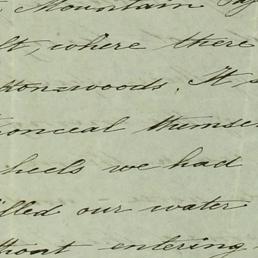 Mountain
, where there
tonwoods. It
conceal themse
heels we had
illed our water
thout entering